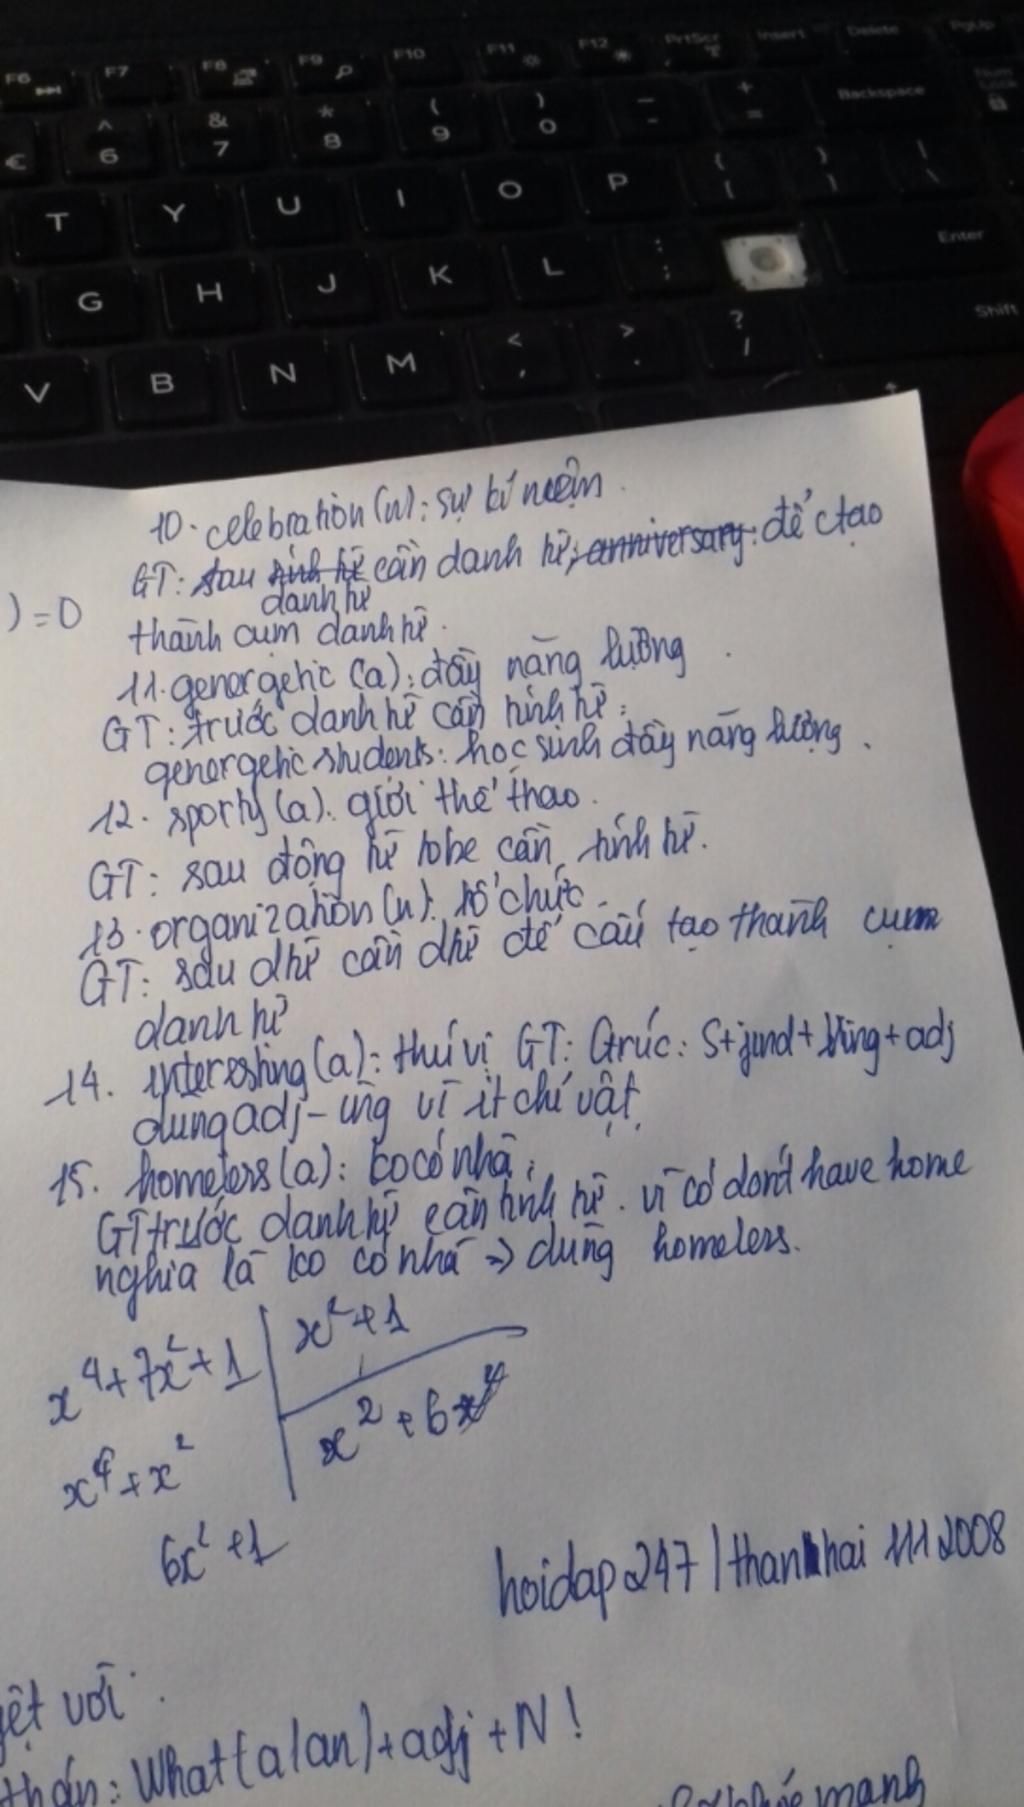 F6 F7 F8 F9 F10 F11 F12 PrtScr Insert Delete PgUp
€ ^ 6 & 7 * 8 ( 9 ) 0 _ - + = Backspace Num Lock
T Y U I O P { [ } ] | \
G H J K L : ; Enter
V B N M < , > . ? / Shift
10. celebration (n): sự kỉ niệm.
GT: sau tính từ cần danh từ, anniversary: để ctạo
danh từ
) = 0
thành cụm danh từ.
11. genergetic (a): đầy năng lượng.
GT: trước danh từ cần tính từ:
genergetic students: học sinh đầy năng lượng.
12. sporty (a): giỏi thể thao.
GT: sau động từ tobe cần tính từ.
13. organization (n): tổ chức.
GT: sau dtừ cần dtừ để cấu tạo thành cụm
danh từ
14. interesting (a): thú vị GT: Ctrúc: S+find+Ving+adj
dùng adj-ing vì it chỉ vật.
15. homeless (a): ko có nhà.
GT trước danh từ cần tính từ. vì có don't have home
nghĩa là ko có nhà => dùng homeless.
x⁴+7x²+1 | x²+1
x⁴+x² x²+6x⁴
6x²+1
hoidap247/thanhhai 1112008
với:
thán: What(a/an)+adj+N!
mạnh